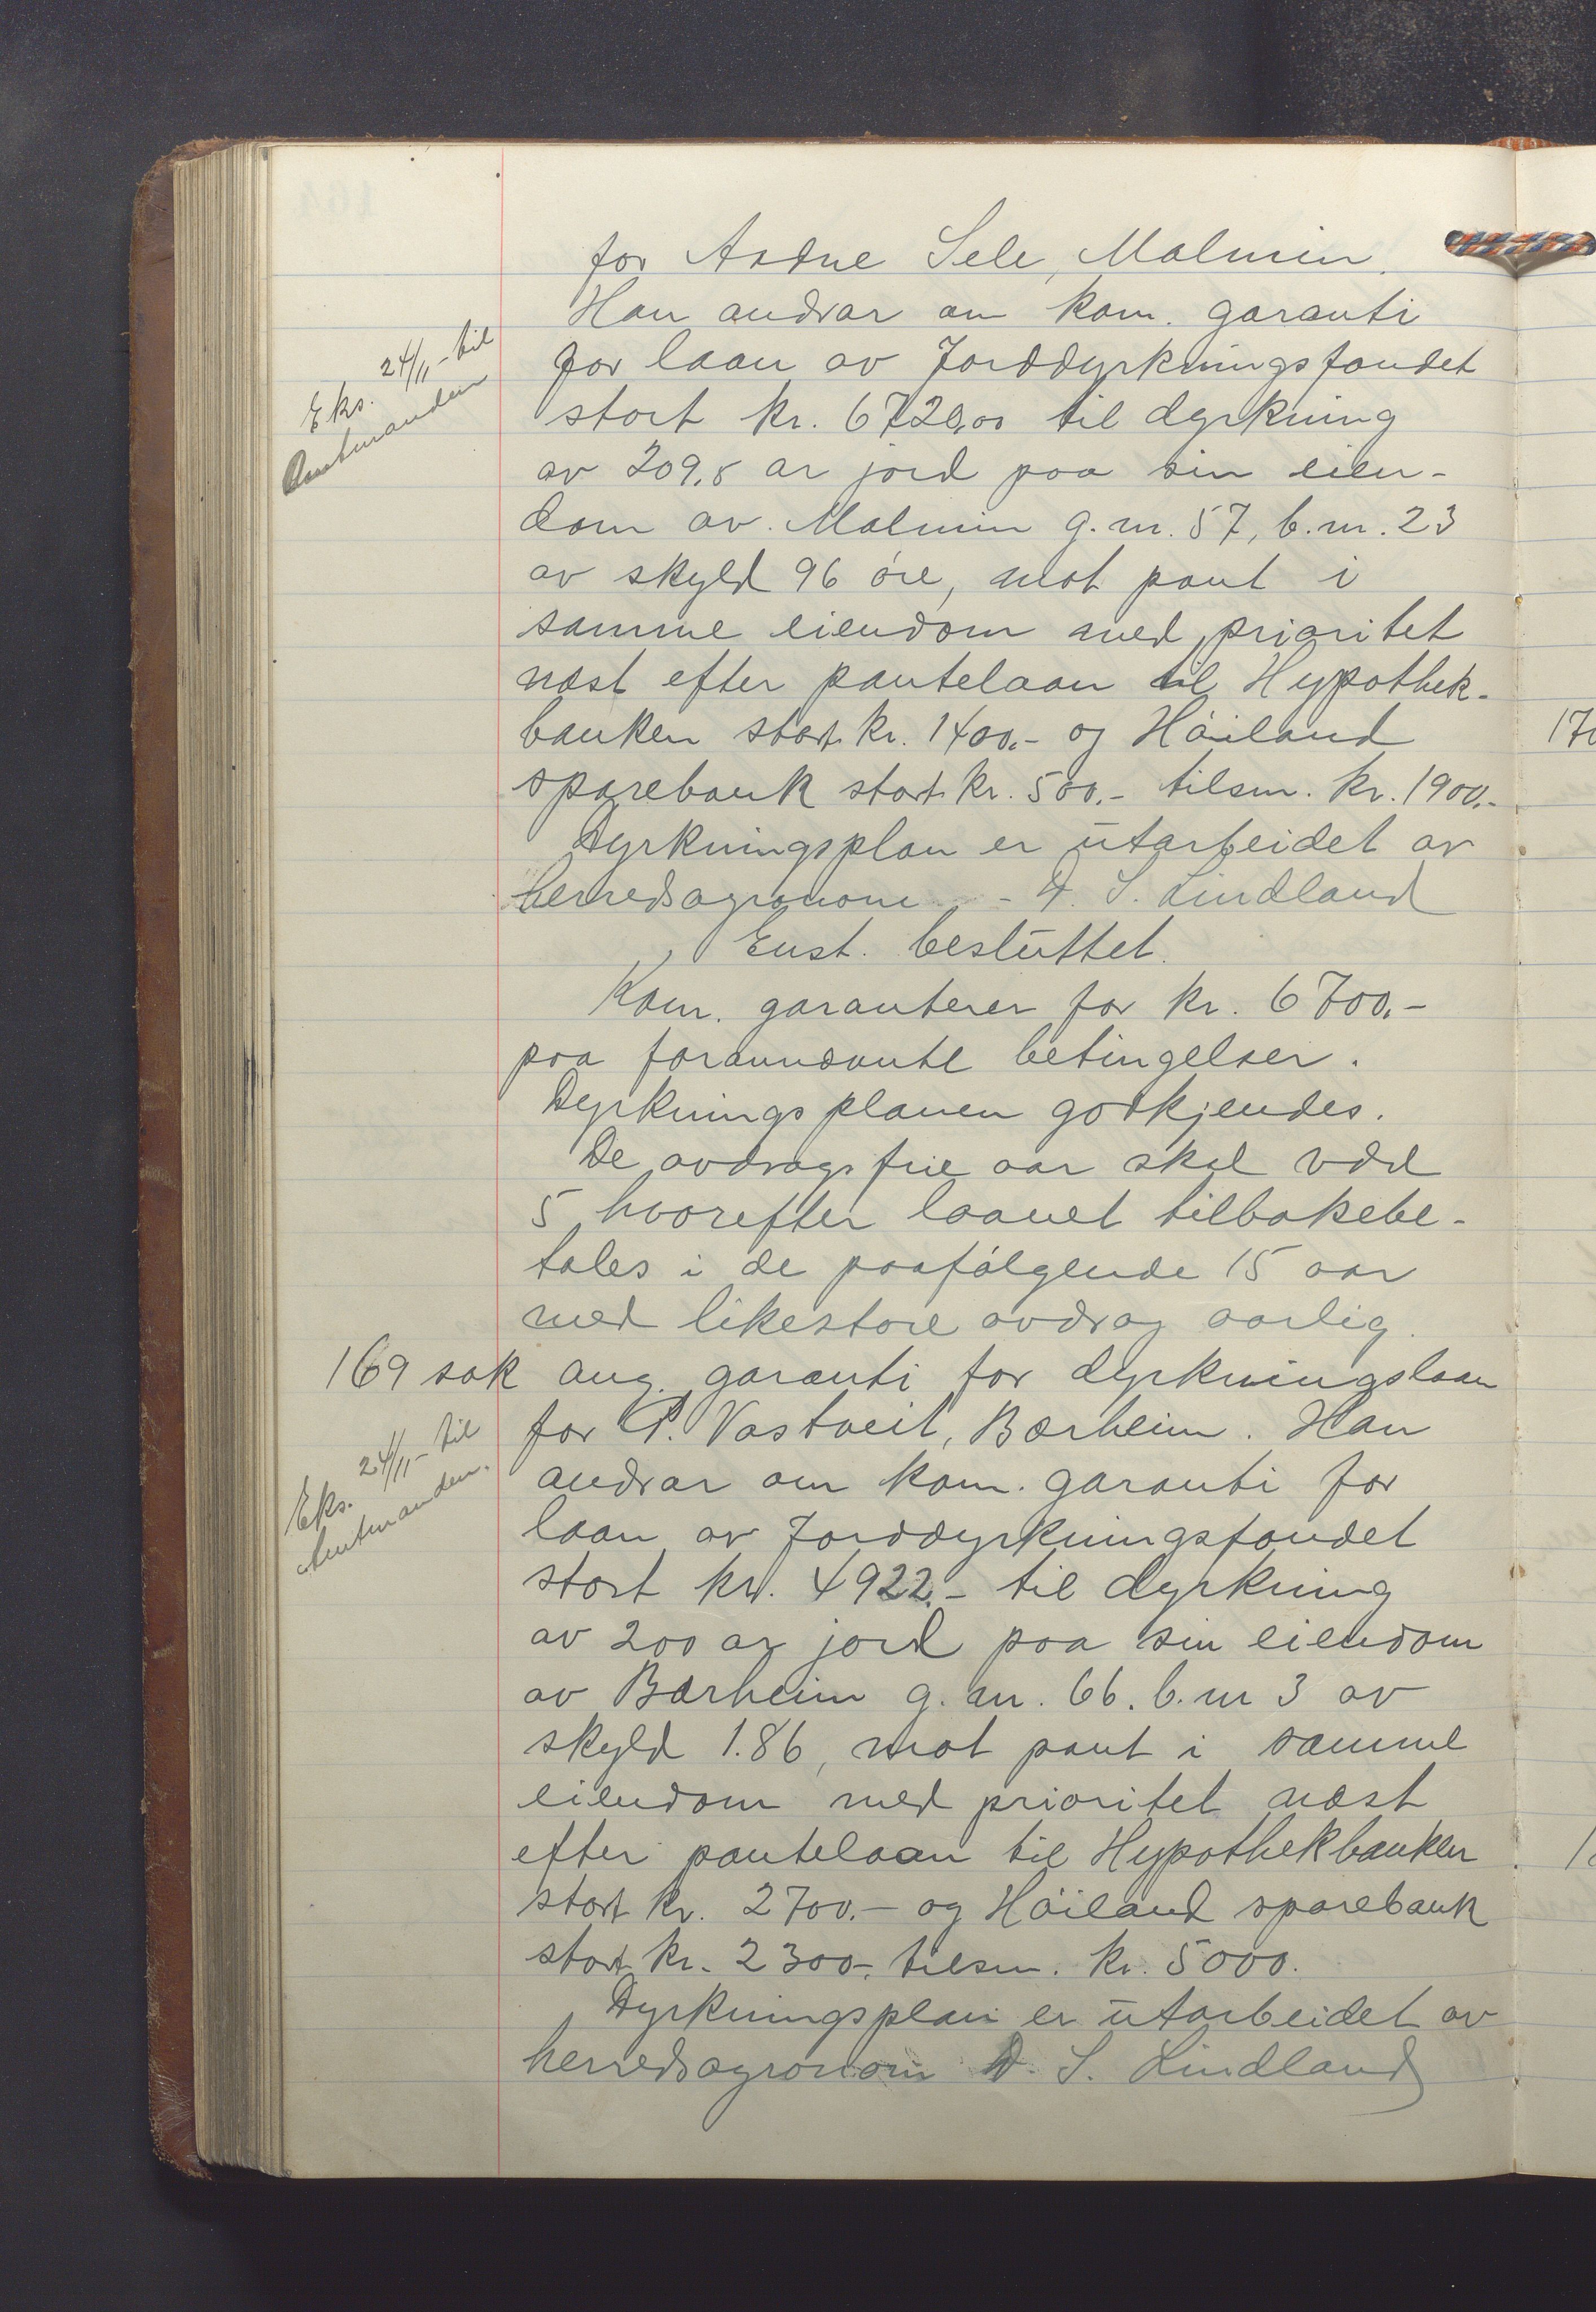 for Aadne Sele, Malmin.
Han andrar om kom. garanti
for laan av Jorddyrkningsfondet
stort kr. 6720,00 til dyrkning
av 209,8 ar jord paa sin eien-
dom av Malmin g.nr. 57, b.nr. 23
av skyld 96 øre, mot pant i
samme eiendom med prioritet
næst efter pantelaan til Hypothek-
banken stort kr. 1400.- og Höiland
sparebank stort kr. 500.- tilsm. kr. 1900.-
Dyrkningsplan er utarbeidet av
herredsagronom - D. S. Lindland
Enst. besluttet.
Kom. garanterer for kr. 6700.-
paa forannævnte betingelser.
Dyrkningsplanen godkjendes.
De avdragsfrie aar skal være
5 hvorefter laanet tilbakebe-
tales i de paafölgende 15 aar
med likestore avdrag aarlig.
Eks. 24/11- til
Amtmanden
169 sak ang. garanti for dyrkningslaan
for P. Vastveit, Bærheim. Han
andrar om kom. garanti for
laan av Jorddyrkningsfondet
stort kr. 4922.- til dyrkning
av 200 ar jord paa sin eiendom
av Bærheim g.nr. 66. b.nr 3 av
skyld 1.86, mot pant i samme
eiendom med prioritet næst
efter pantelaan til Hypothekbanken
stort kr. 2700.- og Höiland sparebank
stort kr. 2300-, tilsm. kr. 5000.
Dyrkningsplan er utarbeidet av
herredsagronom D. S. Lindland
Eks. 24/11- til
Amtmanden.